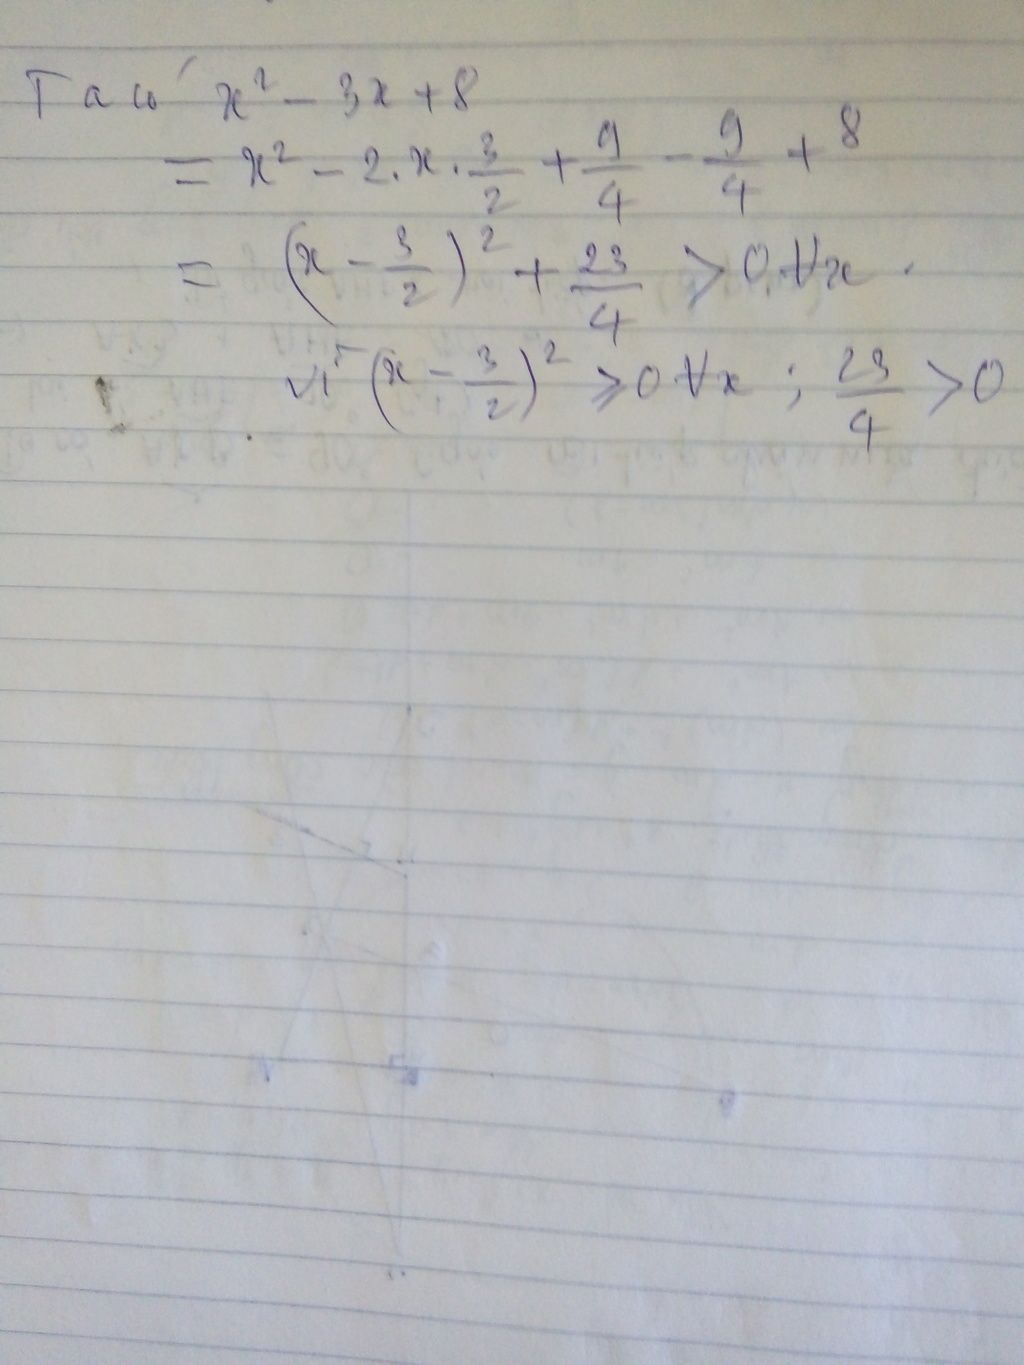 Ta có x² - 3x + 8
= x² - 2.x.3/2 + 9/4 - 9/4 + 8
= (x - 3/2)² + 23/4 > 0 ∀x.
vì (x - 3/2)² ⩾ 0 ∀x ; 23/4 > 0